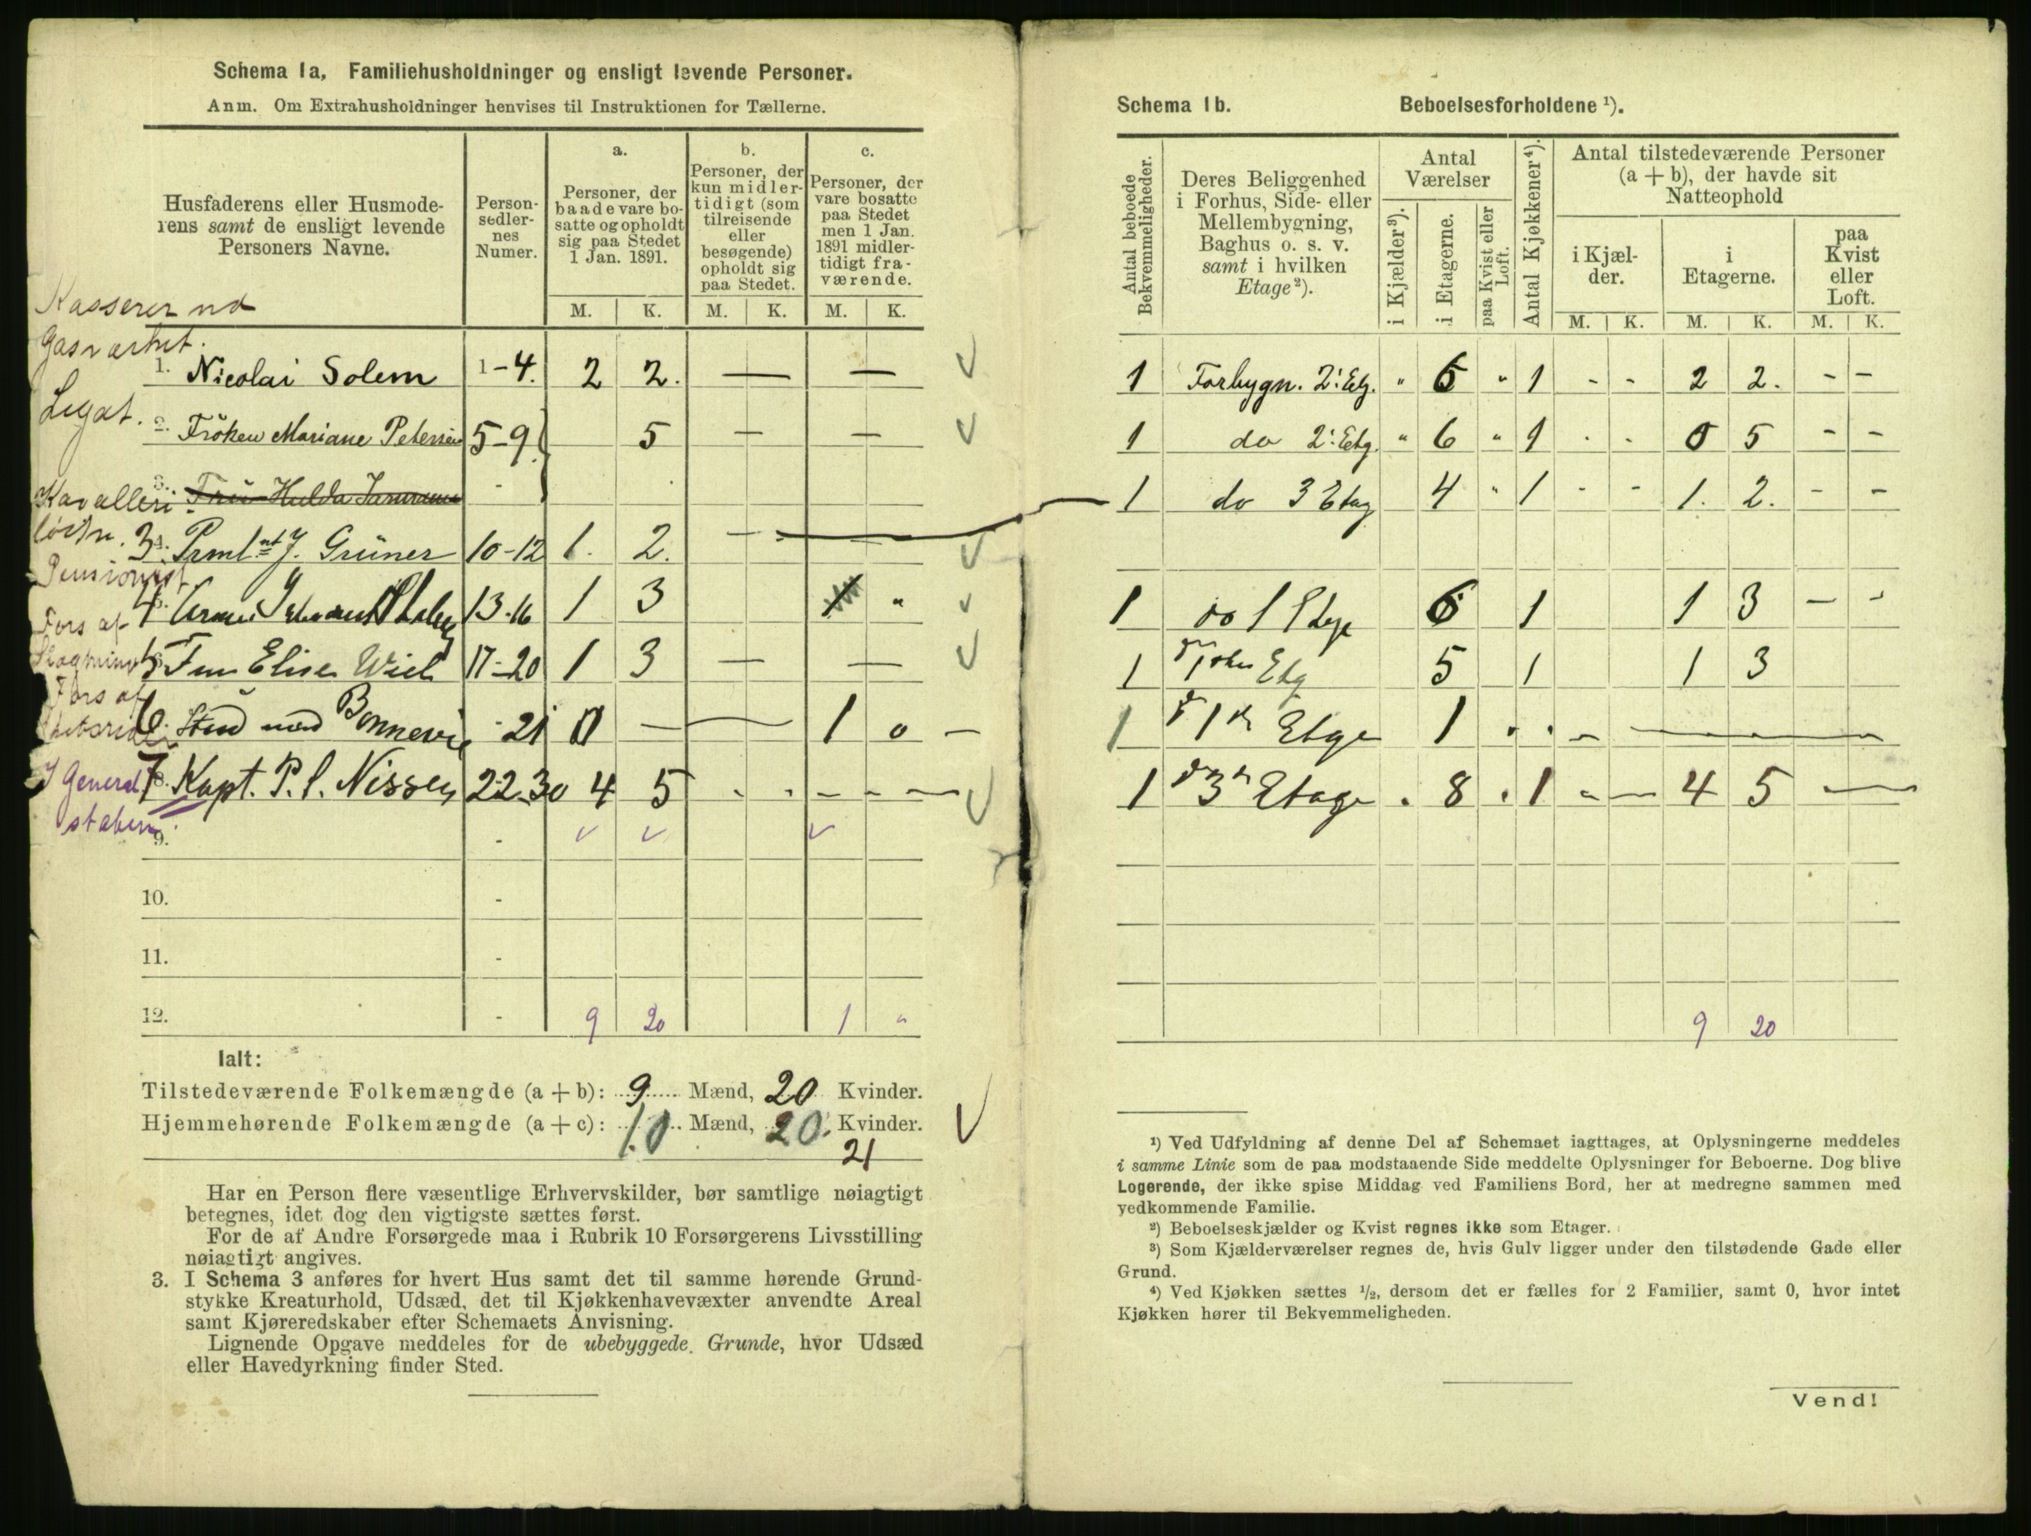 Schema 1a, Familiehusholdninger og ensligt levende Personer.
Anm. Om Extrahusholdninger henvises til Instruktionen for Tællerne.
Husfaderens eller Husmode-
rens samt de ensligt levende
Personers Navne.
Person-
sedler-
nes
Numer.
a.
Personer, der
baade vare bo-
satte og opholdt
sig paa Stedet
1 Jan. 1891.
b.
Personer, der
kun midler-
tidigt (som
tilreisende
eller
besøgende)
opholdt sig
paa Stedet.
c.
Personer, der
vare bosatte
paa Stedet
men 1 Jan.
1891 midler-
tidigt fra-
værende.
M. K. M. K. M. K.
Kasserer ved
Gasværket.
1. Nicolai Solem 1-4. 2 2. — —
Legat.
2. Fröken Mariane Petersen 5-9 5 — —
3. Fru Hulda -
Kavalleri
3 4. Prmlnt J. Grüner 10-12 1. 2. -
Pensionist
4 5. 13-16 1 3 1 "
Fors af
5 6. Fru Elise Wiel 17-20 1 3 — —
Fors af
6 7. Stud med Bonnevie - 21 0 — — 1 0 —
I General
staben.
7 8. Kapt. P. S. Nissen 22-30 4 5 - - - - -
9. -
10. -
11. -
12. - 9 20 1 "
Ialt:
Tilstedeværende Folkemængde (a + b): 9 Mænd, 20 Kvinder.
Hjemmehørende Folkemængde (a + c): 10 Mænd, 20. Kvinder.
21
Har en Person flere væsentlige Erhvervskilder, bør samtlige nøiagtigt
betegnes, idet dog den vigtigste sættes først.
For de af Andre Forsørgede maa i Rubrik 10 Forsørgerens Livsstilling
nøiagtigt angives.
3. I Schema 3 anføres for hvert Hus samt det til samme hørende Grund-
stykke Kreaturhold, Udsæd, det til Kjøkkenhavevæxter anvendte Areal
samt Kjøreredskaber efter Schemaets Anvisning.
Lignende Opgave meddeles for de ubebyggede Grunde, hvor Udsæd
eller Havedyrkning finder Sted.
Schema 1b. Beboelsesforholdene ¹).
Antal beboede
Bekvemmeligheder.
Deres Beliggenhed
i Forhus, Side- eller
Mellembygning,
Baghus o. s. v.
samt i hvilken
Etage²).
Antal
Værelser
i Kjælder³).
i Etagerne.
paa Kvist eller
Loft.
Antal Kjøkkener⁴).
Antal tilstedeværende Personer
(a + b), der havde sit
Natteophold
i Kjæl-
der.
i
Etagerne.
paa
Kvist
eller
Loft.
M. K. M. K. M. K.
1 Forbygn. 2: Etg. " 6 " 1 - - 2 2. - -
1 do 2: Etg. " 6 " 1 - - 0 5 - -
1 do 3 Etag 4 " 1 - - 1. 2. - -
1 do 1 Etge 6 1 1 3 - -
1 Etg 5 1 1 3
1 Etge 1 - - -
1 3 Etage . 8 . 1 - - 4 5 —
9 20
¹) Ved Udfyldning af denne Del af Schemaet iagttages, at Oplysningerne meddeles
i samme Linie som de paa modstaaende Side meddelte Oplysninger for Beboerne. Dog blive
Logerende, der ikke spise Middag ved Familiens Bord, her at medregne sammen med
vedkommende Familie.
²) Beboelseskjælder og Kvist regnes ikke som Etager.
³) Som Kjælderværelser regnes de, hvis Gulv ligger under den tilstødende Gade eller
Grund.
⁴) Ved Kjøkken sættes ½, dersom det er fælles for 2 Familier, samt 0, hvor intet
Kjøkken hører til Bekvemmeligheden.
Vend!